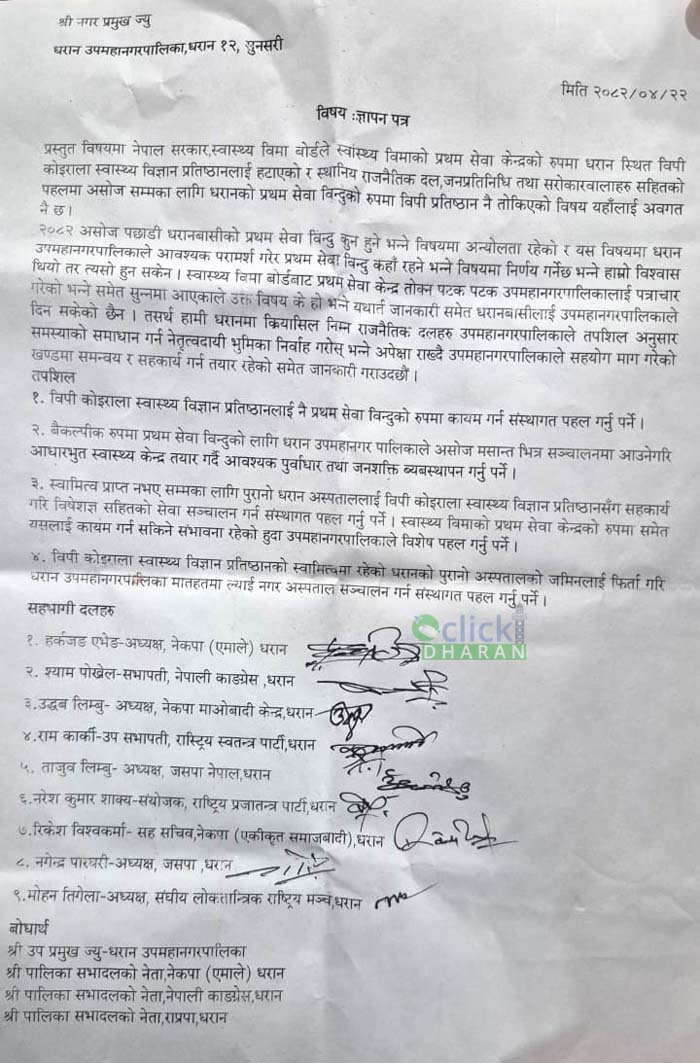 श्री नगर प्रमुख ज्यु
धरान उपमहानगरपालिका,धरान १२, सुनसरी
मिति २०८२/०४/२२
विषय :ज्ञापन पत्र
प्रस्तुत विषयमा नेपाल सरकार,स्वास्थ्य विमा बोर्डले स्वास्थ्य विमाको प्रथम सेवा केन्द्रको रुपमा धरान स्थित विपी
कोइराला स्वास्थ्य विज्ञान प्रतिष्ठानलाई हटाएको र स्थानिय राजनैतिक दल,जनप्रतिनिधि तथा सरोकारवालाहरु सहितको
पहलमा असोज सम्मका लागि धरानको प्रथम सेवा विन्दुको रुपमा विपी प्रतिष्ठान नै तोकिएको विषय यहाँलाई अवगत
नै छ।
२०८२ असोज पछाडी धरानबासीको प्रथम सेवा विन्दु कुन हुने भन्ने विषयमा अन्योलता रहेको र यस विषयमा धरान
उपमहानगरपालिकाले आवश्यक परामर्श गरेर प्रथम सेवा विन्दु कहाँ रहने भन्ने विषयमा निर्णय गर्नेछ भन्ने हाम्रो विश्वास
थियो तर त्यसो हुन सकेन । स्वास्थ्य विमा बोर्डबाट प्रथम सेवा केन्द्र तोक्न पटक पटक उपमहानगरपालिकालाई पत्राचार
गरेको भन्ने समेत सुन्नमा आएकाले उक्त विषय के हो भन्ने यथार्त जानकारी समेत धरानबासीलाई उपमहानगरपालिकाले
दिन सकेको छैन । तसर्थ हामी धरानमा क्रियासिल निम्न राजनैतिक दलहरु उपमहानगरपालिकाले तपशिल अनुसार
समस्याको समाधान गर्न नेतृत्वदायी भुमिका निर्वाह गरोस् भन्ने अपेक्षा राख्दै उपमहानगरपालिकाले सहयोग माग गरेको
खण्डमा समन्वय र सहकार्य गर्न तयार रहेको समेत जानकारी गराउदछौं ।
तपशिल
१. विपी कोइराला स्वास्थ्य विज्ञान प्रतिष्ठानलाई नै प्रथम सेवा विन्दुको रुपमा कायम गर्न संस्थागत पहल गर्नु पर्ने ।
२. बैकल्पीक रुपमा प्रथम सेवा विन्दुको लागि धरान उपमहानगर पालिकाले असोज मसान्त भित्र सञ्चालनमा आउनेगरि
आधारभुत स्वास्थ्य केन्द्र तयार गर्दै आवश्यक पुर्वाधार तथा जनशक्ति ब्यबस्थापन गर्नु पर्ने ।
३. स्वामित्व प्राप्त नभए सम्मका लागि पुरानो धरान अस्पताललाई विपी कोइराला स्वास्थ्य विज्ञान प्रतिष्ठानसँग सहकार्य
गरि विषेशज्ञ सहितको सेवा सञ्चालन गर्न संस्थागत पहल गर्नु पर्ने । स्वास्थ्य विमाको प्रथम सेवा केन्द्रको रुपमा समेत
यसलाई कायम गर्न सकिने संभावना रहेको हुदा उपमहानगरपालिकाले विशेष पहल गर्नु पर्ने ।
४. विपी कोइराला स्वास्थ्य विज्ञान प्रतिष्ठानको स्वामित्वमा रहेको धरानको पुरानो अस्पतालको जमिनलाई फिर्ता गरि
धरान उपमहानगरपालिका मातहतमा ल्याई नगर अस्पताल सञ्चालन गर्न संस्थागत पहल गर्नु पर्ने ।
सहभागी दलहरु
१. हर्कजङ एभेङ-अध्यक्ष, नेकपा (एमाले) धरान
click
DHARAN
२. श्याम पोखेल-सभापती, नेपाली काङग्रेस ,धरान
३.उद्धब लिम्बु- अध्यक्ष, नेकपा माओबादी केन्द्र,धरान
४.राम कार्की-उप सभापती, रास्ट्रिय स्वतन्त्र पार्टी,धरान
५. ताजुव लिम्बु- अध्यक्ष, जसपा नेपाल,धरान
६.नरेश कुमार शाक्य-संयोजक, राष्ट्रिय प्रजातन्त्र पार्टी,धरान
७.रिकेश विश्वकर्मा- सह सचिव,नेकपा (एकीकृत समाजबादी),धरान
८. नगेन्द्र पारघरी-अध्यक्ष, जसपा ,धरान
९.मोहन तिगेला-अध्यक्ष, संघीय लोकतान्त्रिक राष्ट्रिय मञ्च,धरान
बोधार्थ
श्री उप प्रमुख ज्यु-धरान उपमहानगरपालिका
श्री पालिका सभादलको नेता,नेकपा (एमाले) धरान
श्री पालिका सभादलको नेता,नेपाली काङग्रेस,धरान
श्री पालिका सभादलको नेता,राप्रपा,धरान